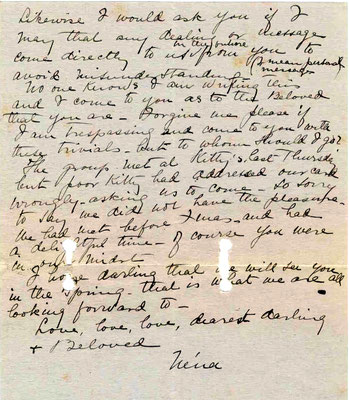 Likewise I would ask you if I
may that any dealing or message
in the future
come directly to us from you to
I mean personal
messages
avoid misunderstanding -
No one knows I am writing this
and I come to you as to the Beloved
that you are - Forgive me please if
I am trespassing and come to you with
these trivials - but to whom should I go?
The group met at Kitty's last Thursday
but poor Kitty had addressed our card
wrongly - asking us to come - So sorry
to say we did not have the pleasure -
We had met before Xmas - and had
a delightful time - Of course you were
in our midst
I hope darling that we will see you
in the spring - that is what we are all
looking forward to -
Love, love, love, dearest darling
+ Beloved
Néna